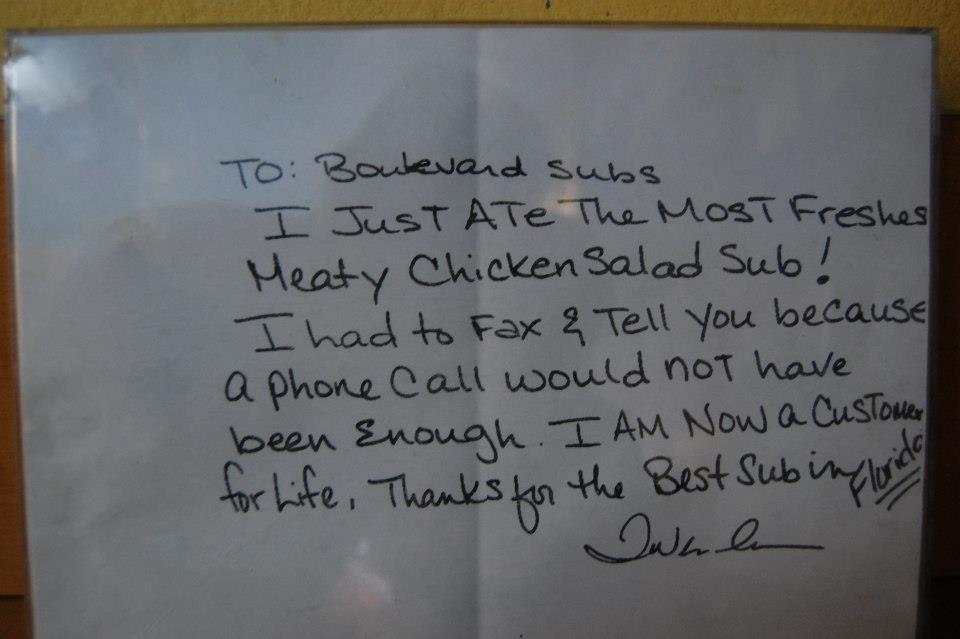 TO: Boulevard Subs
I Just ATe The MosT Freshes
Meaty Chicken Salad Sub!
I had to Fax & Tell you because
a phone Call would not have
been Enough. I AM Now a Customer
for Life, Thanks for the Best Sub in Florida